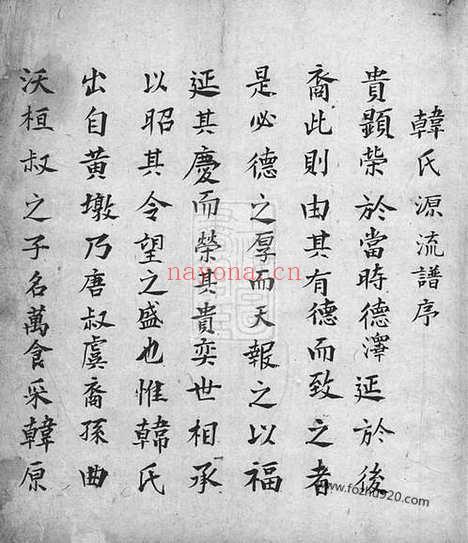 韓氏源流譜序
貴顯榮於當時德澤延於後
裔此則由其有德而致之者
是必德之厚而天報之以福
延其慶而榮其貴奕世相承
以昭其令望之盛也惟韓氏
出自黃墩乃唐叔虞裔孫曲
沃桓叔之子名萬食采韓原
nayona.cn
www.fozhu920.com